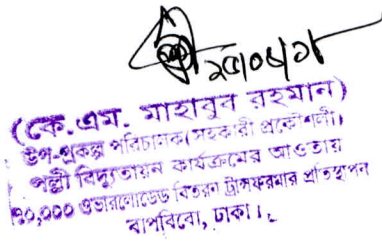 (কে.এম. মাহাবুব রহমান)
উপ-প্রকল্প পরিচালক(সহকারী প্রকৌশলী)
পল্লী বিদ্যুতায়ন কার্যক্রমের আওতায়
৭০,০০০ ওভারলোডেড বিতরন ট্রান্সফরমার প্রতিস্থাপন
বাপবিবো, ঢাকা।